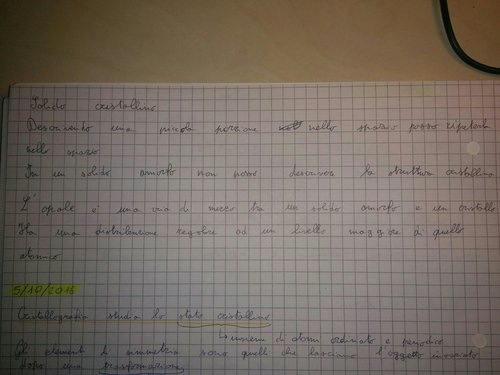 Solido cristallino
Descrivendo una piccola porzione nello spazio posso ripeterla
nello spazio
In un solido amorfo non posso descrivere la struttura cristallina
L'opale è una via di mezzo tra un solido amorfo e un cristallo
Ha una distribuzione regolare ad un livello maggiore di quello
atomico
5/10/2016
Cristallografia studia lo stato cristallino
↳ insieme di atomi ordinato e periodico
Gli elementi di simmetria sono quelli che lasciano l'oggetto invariato
dopo una trasformazione